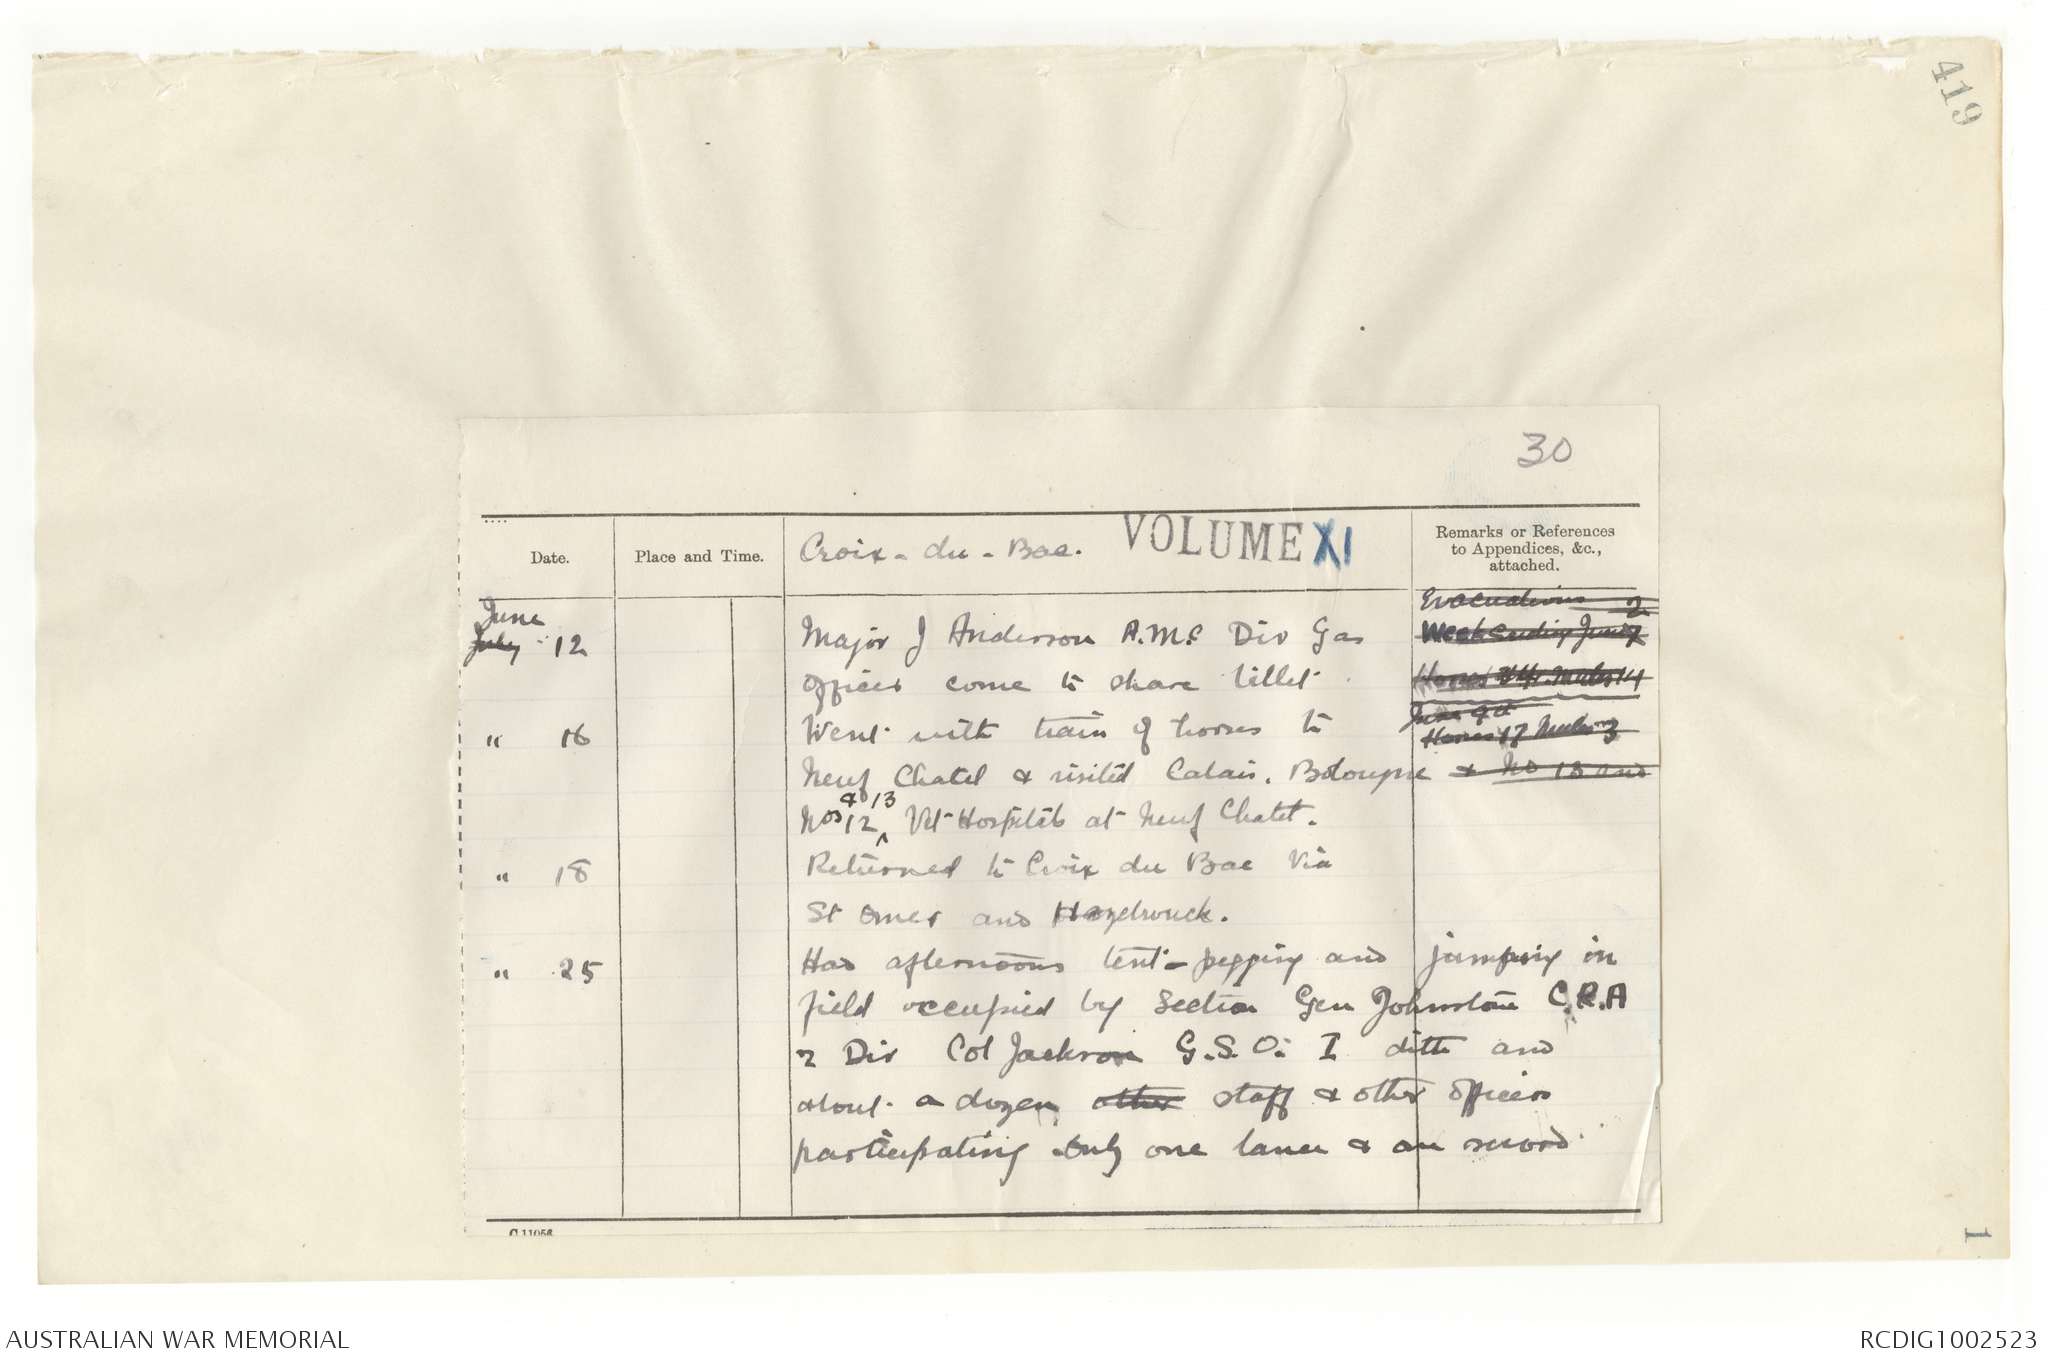 419
30
Date.
Place and Time.
Croix-du-Bac.
VOLUME XI
Remarks or References
to Appendices, &c.,
attached.
Evacuations 2
Week ending June 7
Horses 34. Mules 14
June 9th
Horses 17 Mules 3
June
July 12
Major J Anderson A.M.C Div Gas
officer come to share billet
" 16
Went with train of horses to
Neuf Chatel & visited Calais, Bolougne & No 13 and
Nos 12 & 13 ^ Vet Hospitals at Neuf Chatel.
" 18
Returned to Croix du Bac Via
St Omer and Hazebrouck.
" 25
Had afternoons tent-pegging and jumping in
field occupied by Section Gen Johnston C.R.A
2 Div Col Jackson G.S.O. I ditto and
about a dozen other staff & other officers
participating Only one lance & one sword
C.11056
1
AUSTRALIAN WAR MEMORIAL
RCDIG1002523